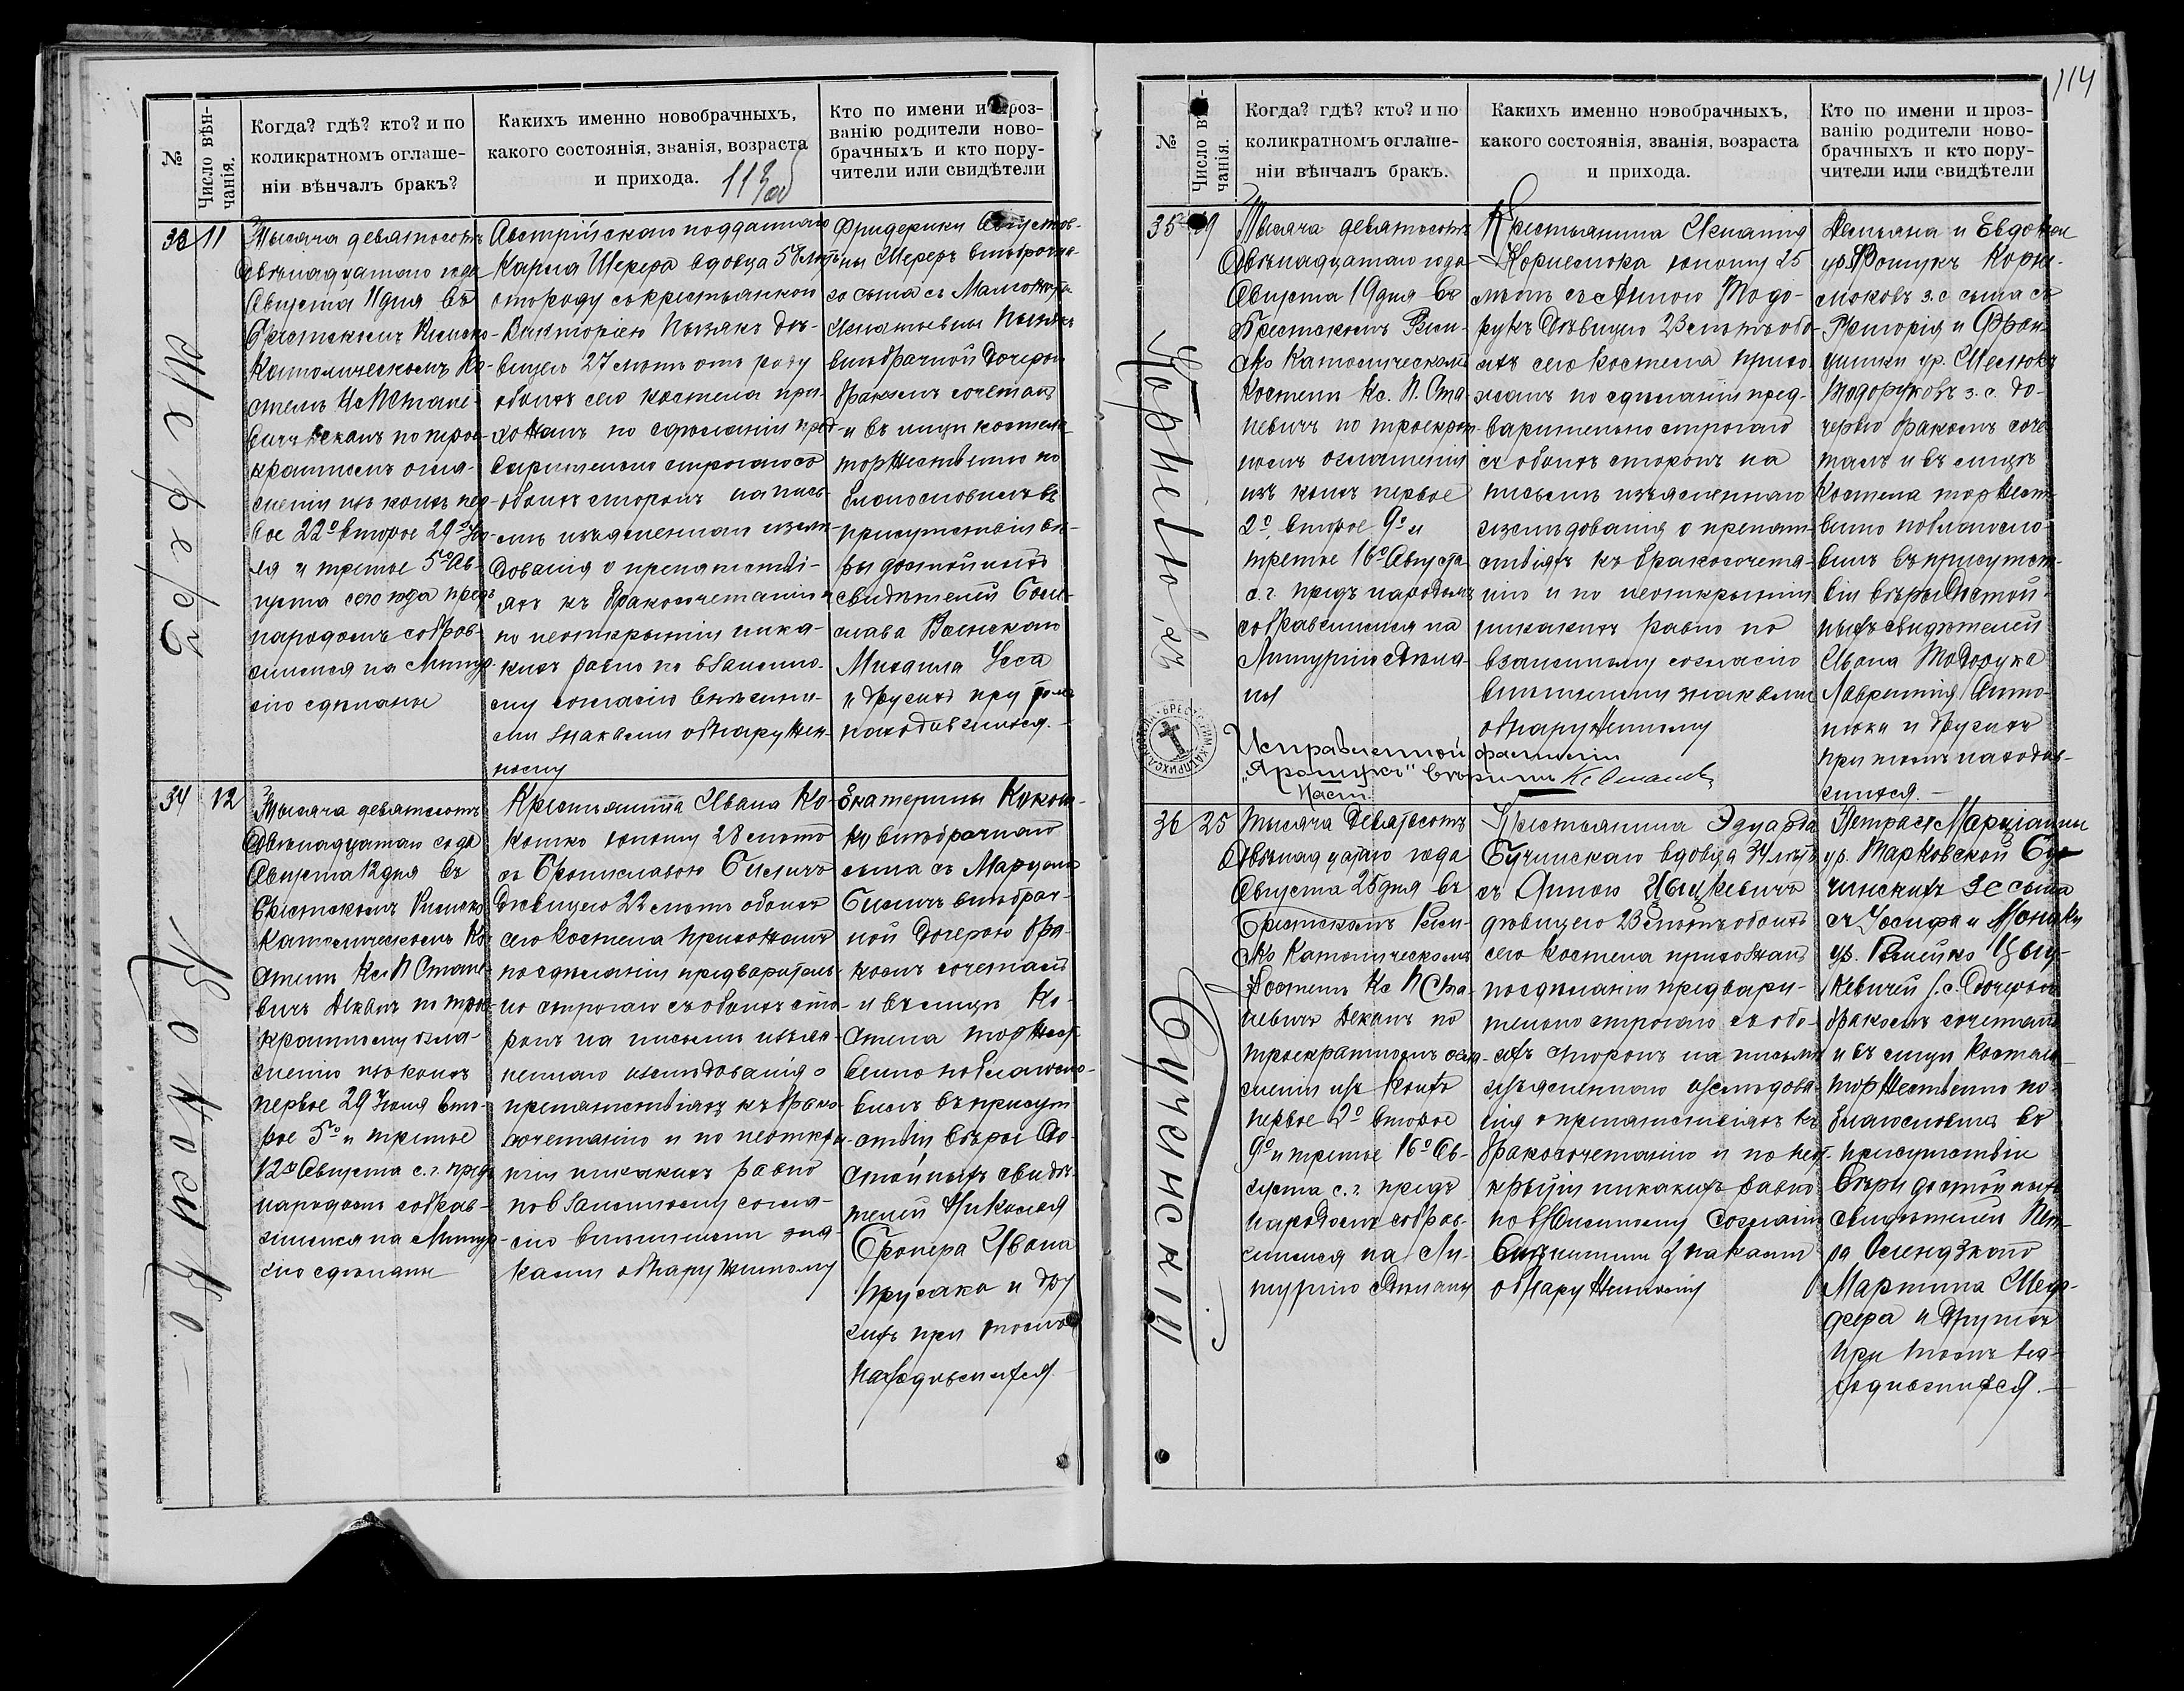 114
№
Число вѣн-
чанія.
Когда? гдѣ? кто? и по
коликратномъ оглаше-
ніи вѣнчалъ бракъ?
Какихъ именно новобрачныхъ,
какого состоянія, званія, возраста
и прихода.
113об
Кто по имени и проз-
ванію родители ново-
брачныхъ и кто пору-
чители или свидѣтели
33
11
Шереръ
Тысяча девятьсотъ
двѣнадцатаго года
Августа 11 дня въ
Брестскомъ Римско-
Католическомъ Ко-
стелѣ Кс П Стане-
вичъ Деканъ по трое-
кратномъ огла-
шеніи изъ коихъ пер-
вое 22º второе 29го Ію-
ля и третье 5го Ав-
густа сего года предъ
народомъ собрав-
шимся на Литур-
гію сдѣланы
Австрійскаго подданнаго
Карла Шерера вдовца 58 лѣтъ
отъ роду съ крестьянкою
Викторіею Пызякъ дѣ-
вицею 27 лѣтъ отъ роду
обоихъ сего костела при-
хожанъ по сдѣланіи пред-
варительно строгаго съ
обоихъ сторонъ на пись-
мѣ изъясненнаго изслѣ-
дованія о препятстві-
яхъ къ бракосочетанію и
по неоткрытіи ника-
кихъ равно по взаимно-
му согласію внѣшни-
ми знаками обнаружен-
ному
Фридерики Августов-
ны Шереръ внѣбрачна-
го сына съ
Игнатьевны Пызякъ
внѣбрачной дочерью
бракомъ сочеталъ
и въ лицѣ костела
торжественно по
благословилъ въ
присутствіи вѣ-
ры достойныхъ
свидѣтелей Боле-
слава
Михаила
и другихъ при томъ
находившихся. —
34
12
Кокошко.
Тысяча девятьсотъ
двѣнадцатаго года
Августа 12 дня въ
Брестскомъ Римско
Католическомъ Ко-
стелѣ Кс П Стане-
вичъ Деканъ по трое-
кратному огла-
шенію изъ коихъ
первое 29 Іюля вто-
рое 5º и третье
12го Августа с. г. предъ
народомъ собрав-
шимся на Литур-
гію сдѣланы
Крестьянина Ивана Ко-
кошко юношу 28 лѣтъ
съ Брониславою Биличъ
дѣвицею 22 лѣтъ обоихъ
сего Костела прихожанъ
по сдѣланіи предваритель-
но строгаго съ обоихъ сто-
ронъ на письмѣ изъяс-
неннаго изслѣдованія о
препятствіяхъ къ брако-
сочетанію и по неоткры-
тіи никакихъ равно
по взаимному согла-
сію внѣшними зна-
ками обнаруженному
Екатерины Кокош-
ко внѣбрачнаго
сына съ
Биличъ внѣбрач-
ной дочерью бра-
комъ сочеталъ
и въ лицѣ Ко-
стела торжест-
венно поблагосло-
вилъ въ присут
ствіи вѣры до-
стойныхъ свидѣ-
телей Николая
Ивана
Прусака и дру
гихъ при томъ
находившихся
№
Число вѣн-
чанія.
Когда? гдѣ? кто? и по
коликратномъ оглаше-
ніи вѣнчалъ бракъ.
Какихъ именно новобрачныхъ,
какого состоянія, званія, возраста
и прихода.
Кто по имени и проз-
ванію родители ново-
брачныхъ и кто пору-
чители или свидѣтели
35
19
Корнелюкъ
Тысяча девятьсотъ
двѣнадцатаго года
Августа 19 дня въ
Брестскомъ Рим-
ско Католическомъ
Костелѣ Кс. П. Ста
невичъ по троекрат-
номъ оглашеніи
изъ коихъ первое
2º, второе 9º и
третье 16º Августа
с. г. предъ народомъ
собравшимся на
Литургію сдѣла-
ны
Крестьянина Игнатія
Корнелюка юношу 25
лѣтъ съ Анною Тодо-
рукъ дѣвицею 23 лѣтъ обо-
ихъ сего костела прихо-
жанъ по сдѣланіи пред-
варительно строгаго
съ обоихъ сторонъ на
письмѣ изъясненнаго
изслѣдованія о препят-
ствіяхъ къ бракосочета-
нію и по неоткрытіи
никакихъ равно по
взаимному согласію
внѣшними знаками
обнаруженному
Демьяна и Евдокіи
ур. Корне-
люковъ з. с. сына съ
Григорія и Фран-
цишки ур.
Тодоруковъ з. с. до-
черью бракомъ соче
талъ и въ лицѣ
Костела торжест-
венно поблагосло-
вилъ въ присутст-
віи вѣры достой-
ныхъ свидѣтелей
Ивана Тодорука
Лаврентія Анто-
нюка и другихъ
при томъ находив-
шихся. —
Исправленной фамиліи
вѣрить
Наст.
36
25
Бучинскій
Тысяча девятьсотъ
двѣнадцатаго года
Августа 25 дня въ
Брестскомъ Рим-
ско Католическомъ
Костелѣ Кс П Ста-
невичъ Деканъ по
троекратномъ огла-
шеніи изъ коихъ
первое 2º второе
9º и третье 16º Ав-
густа с. г. предъ
народомъ собрав-
шимся на Ли-
тургію сдѣланы
Крестьянина Эдуарда
Бучинскаго вдовца 34 лѣтъ
съ Анною Цыцкевичъ
дѣвицею 23 лѣтъ обоихъ
сего костела прихожанъ
по сдѣланіи предвари-
тельно строгаго съ обо-
ихъ сторонъ на письмѣ
изъясненнаго изслѣдова
нія о препятствіяхъ къ
бракосочетанію и по неот-
крытіи никакихъ равно
по взаимному согласію
внѣшними знаками
обнаруженному
Петра и Марціанны
ур. Марковской Бу-
чинскихъ з с сына
съ Іосифа и Моники
ур.
Цыц-
кевичей з. с. дочерью
бракомъ сочеталъ
и въ лицѣ Костела
торжественно по-
благословилъ въ
присутствіи
вѣры достойныхъ
свидѣтелей Пет-
ра
Мартина
и другихъ
при томъ на-
ходившихся. —